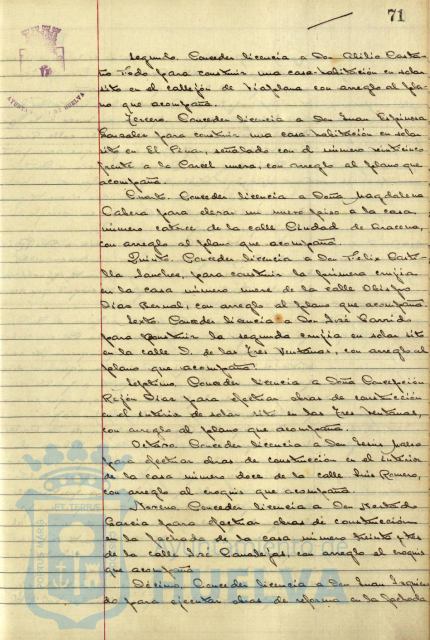 71
Segundo. Conceder licencia a Don Abilio Casta-
ño Todo para construir una casa-habitación en solar
sito en el callejón de Viaplana con arreglo al pla-
no que acompaña.
Tercero. Conceder licencia a Don Juan Espinosa
Gonzalez para construir una casa habitación en solar
sito en El Pinar, señalado con el número veinticinco
frente a la Carcel nueva, con arreglo al plano que
acompaña.
Cuarto. Conceder licencia a Doña Magdalena
Cabera para elevar un nuevo piso a la casa,
número catorce de la calle Ciudad de Aracena,
con arreglo al plano que acompaña.
Quinto. Conceder licencia a Don Felix Caste-
lla Sanchez, para construir la primera crujia
en la casa número nueve de la calle Obispo
Diaz Bernal, con arreglo al plano que acompaña.
Sexto. Conceder licencia a Don José Garrido
para construir la segunda crujia en solar sito
en la calle D. de las Tres Ventanas, con arreglo al
plano que acompaña.
Septimo. Conceder licencia a Doña Concepción
Rejón Diaz para efectuar obras de construcción
en el interior de solar sito en las Tres Ventanas,
con arreglo al plano que acompaña.
Octavo. Conceder licencia a Don Jesus
para efectuar obras de construcción en el interior
de la casa número doce de la calle Luis Romero,
con arreglo al croquis que acompaña.
Noveno. Conceder licencia a Don
Garcia para efectuar obras de construcción
en la fachada de la casa número treinta y tres
de la calle José Canalejas, con arreglo al croquis
que acompaña.
Décimo. Conceder licencia a Don Juan Izquier-
do para ejecutar obras de reforma en la fachada